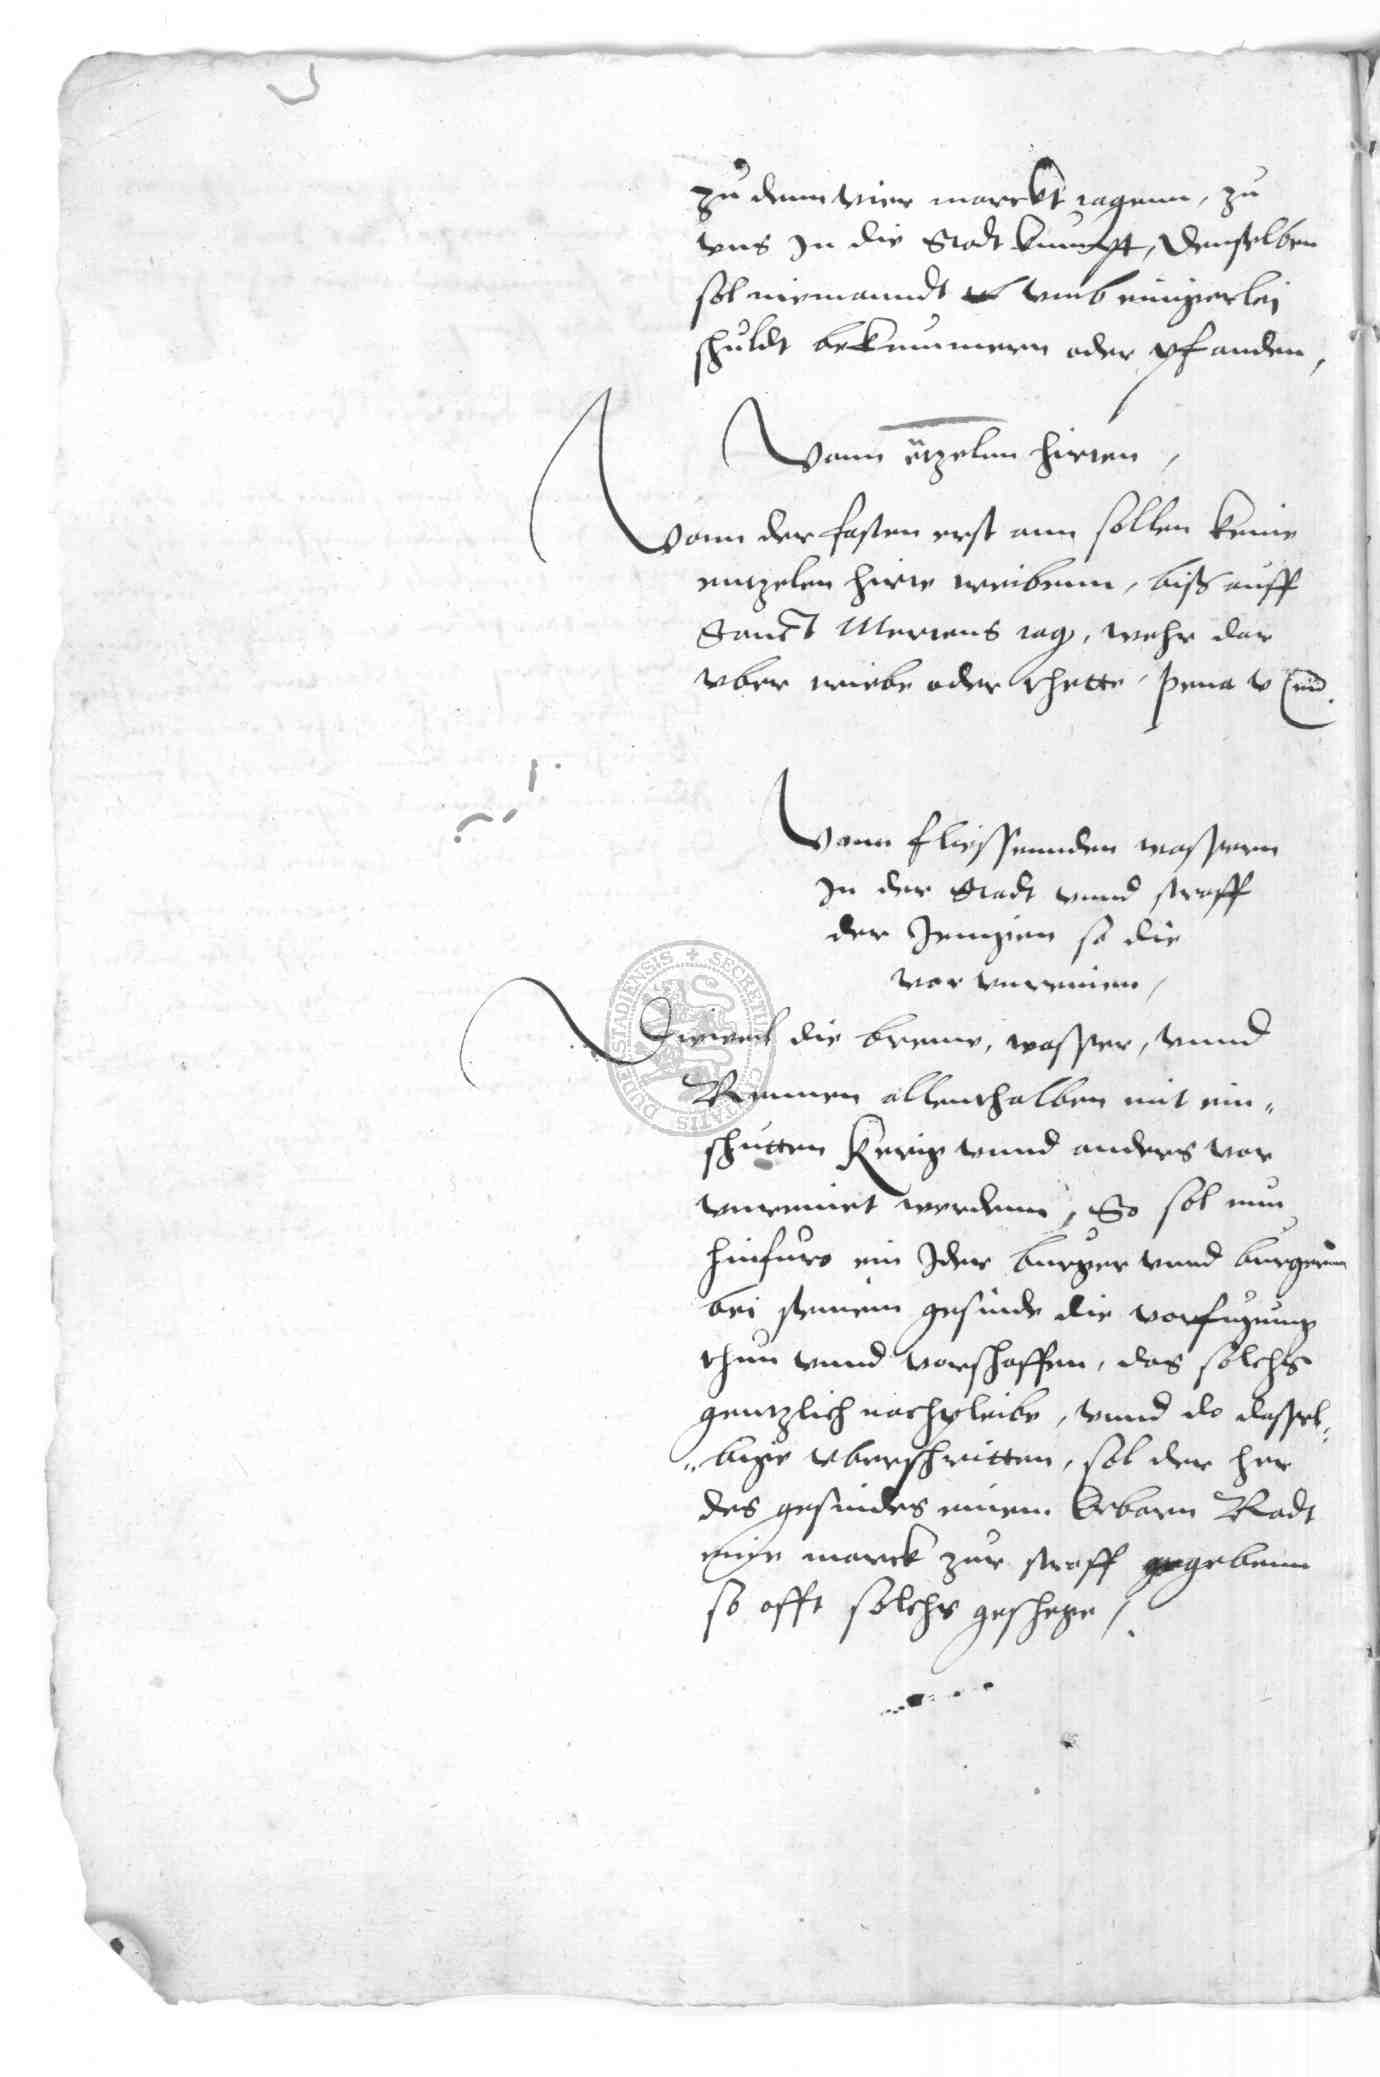 zu denn vier marckt tagenn, zu
vns In die Stadt kumpt, denselben
sol niemanndt vmb einigerlei
schuldt bekummern oder pfanden,
Vonn etzelen hirten,
Vonn der fasten erst ann sollen keine
entzelen hirte treibenn, biß auff
Sanct Mertens tag, wehr dar
vber triebe oder thette, pena v
Vonn fliessennden wassern
In der Stadt vnnd straff
der Jenigen so die
vor vnreinien,
Dieweil die brenne, wasser, vnnd
Rennen allenthalben mit ein„
schutten Kerig vnnd anders vor
vnreiniet werdenn, So sol nun
hinfuro ein Jder burger vnnd burgerinn
bei seinem gesinde die vorfugung
thun vnnd vorschaffen, das solchs
gentzlich nachpleibe, vnnd do dassel„
„bige vberschritten, sol der her
des gesindes einem Erbarn Radt
eine marck zur straff gegebenn
so offt solchs geschege,
SECRETUM CIVITATIS DUDERSTADIENSIS